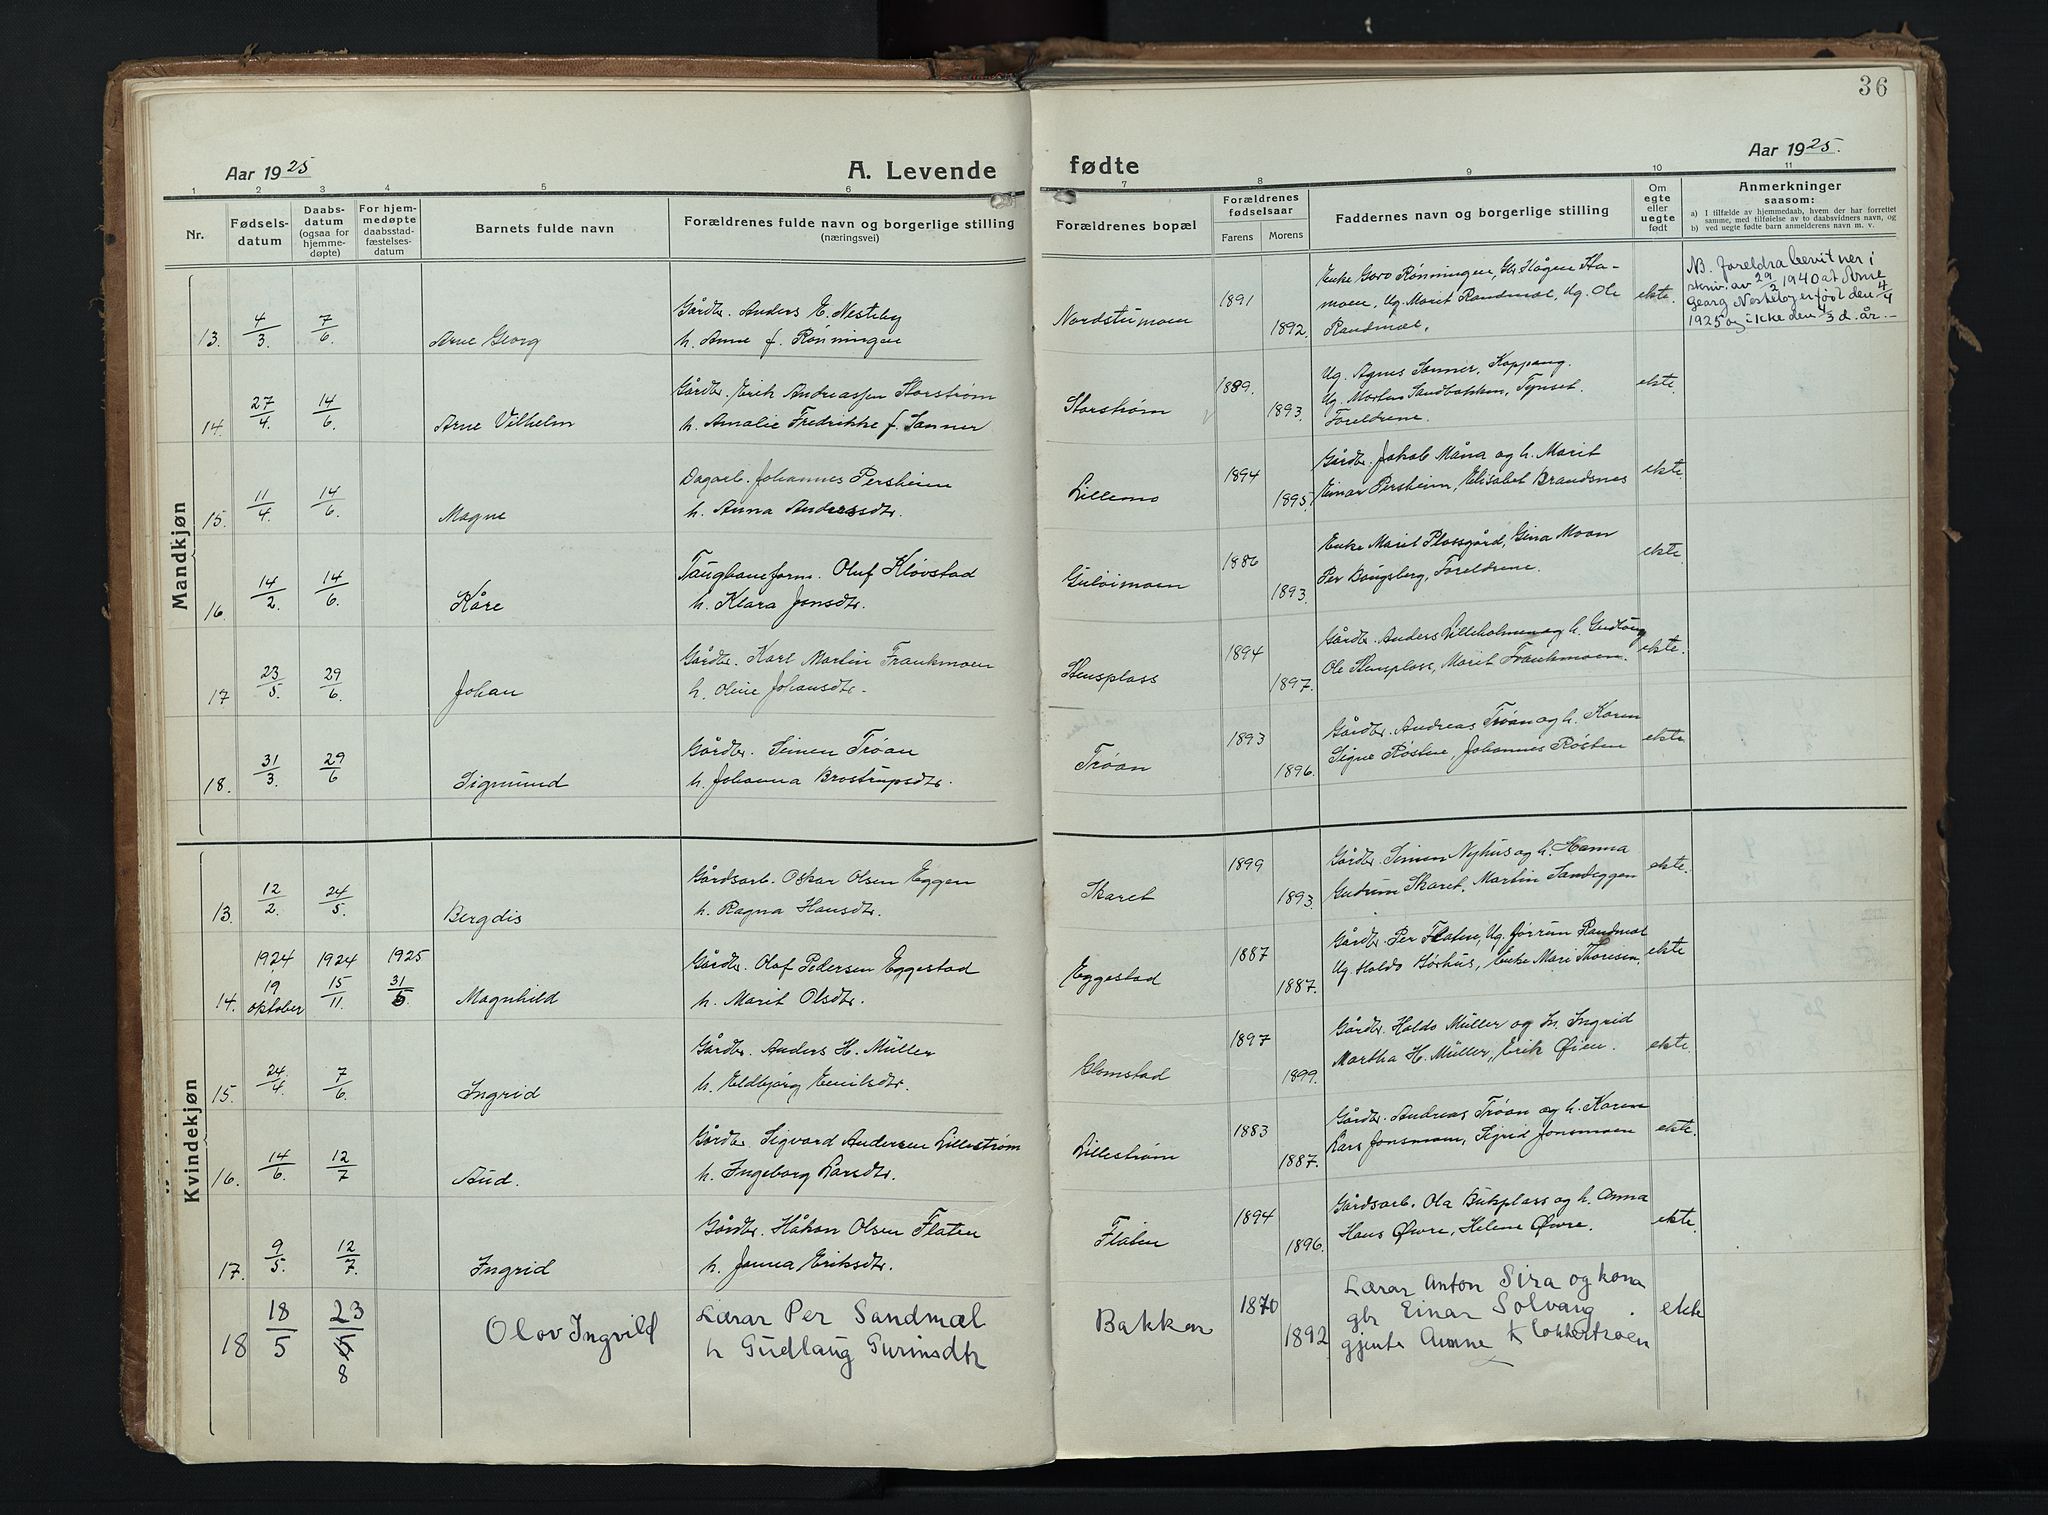 36
Aar 1925
A. Levende
fødte
Aar 1925.
1 2 3 4 5 6 7 8 9 10 11
Nr.
Fødsels-
datum
Daabs-
datum
(ogsaa for
hjemme-
døpte)
For hjem-
medøpte
daabsstad-
fæstelses-
datum
Barnets fulde navn
Forældrenes fulde navn og borgerlige stilling
(næringsvei)
Forældrenes bopæl
Forældrenes
fødselsaar
Farens
Morens
Faddernes navn og borgerlige stilling
Om
egte
eller
uegte
født
Anmerkninger
saasom:
a) I tilfælde av hjemmedaab, hvem der har forrettet
samme, med tilføielse av to daabsvidners navn, og
b) ved uegte fødte barn anmelderens navn m. v.
Mandkjøn
13. 4/3 7/6 Arne Georg
Gårdbr. Anders E. Nesteby
h. Anne f. Rønningen
Nordstumoen
1891
1892.
Enke Goro Rønningen, Gbr Hågen Ha-
moen, Ug. Marit Randmæl, Ug. Ole
Randmæl,
ekte.
NB. foreldra bevitner i
skriv. av 29/2 1940 at Arne
Georg Nesteby er født den 4/4
1925 og ikke den 4/3 d. år. -
14. 27/4 14/6 Arne Vilhelm
Gårdbr. Erik Andreassen Storstrøm
h. Amalie Fredrikke f. Sanner
Storstrøm
1889.
1893.
Ug. Agnes Sanner, Koppang.
Ug. Morten Sandbakken, Tynset.
Foreldrene.
ekte.
15. 11/4 14/6 Magne
Dagarb. Johannes Persheim
h. Anna Andersdtr.
Lillemo
1894
1895.
Gårdbr. Jakob Måna og h. Marit
Einar Persheim, Elisabet Brandsnes
ekte.
16. 14/2. 14/6. Kåre
Taugbaneform. Oluf Kløvstad
h. Klara Jonsdtr.
Guløimoen
1886
1893.
Enke Marit Plassgård, Gina Moan
Per Bangsberg, Foreldrene.
ekte.
17 23/5. 29/6 Johan
Gårdbr. Karl Martin Frankmoen
h. Oline Johansdtr.
Stensplass
1894
1897.
Gårdbr. Anders Lilleholmen og h. Gudlaug
Ole Stensplass, Marit Frankmoen.
ekte.
18. 31/3. 29/6 Sigmund
Gårdbr. Simen Trøan
h. Johanna Brostrupsdtr.
Trøan
1893
1896.
Gårdbr. Andreas Trøan og h. Karen
Signe Røsten, Johannes Røsten
ekte.
Kvindekjøn
13. 12/2. 24/5. Bergdis
Gårdsarb. Oskar Olsen Eggen
h. Ragna Hansdtr.
Skaret
1899
1893.
Gårdbr. Simen Nyhus og h. Hanna
Gudrun Skaret, Martin Sandeggen
ekte.
1924 1924 1925
14. 19 oktober 15/11 31/5 Magnhild
Gårdbr. Olaf Pedersen Eggestad
h. Marit Olsdtr.
Eggestad
1887
1887.
Gårdbr. Per Flaten, Ug. Jørrun Randmæl
Ug. Haldo Hørhus, Enke Mari Thoresen,
ekte
15. 24/4 7/6. Ingrid
Gårdbr. Anders H. Müller
h. Eldbjørg Emilsdtr.
Glomstad
1897
1899.
Gårdbr. Haldo Müller og h. Ingrid
Martha H. Müller, Erik Øien.
ekte.
16. 14/6. 12/7 Aud.
Gårdbr. Sigvard Andersen Lillestrøm
h. Ingeborg Larsdtr.
Lillestrøm
1883
1887.
Gårdbr. Andreas Trøan og h. Karen
Lars Jonsmoen, Sigrid Jonsmoen
ekte.
17. 9/5. 12/7. Ingrid
Gårdbr. Håkon Olsen Flaten
h. Jonna Eriksdtr.
Flaten
1894
1896.
Gårdsarb. Ola Bukplass og h. Anna
Hans Øvre, Helene Øvre.
ekte.
18 18/5 23/8 Olov Ingvild
Lærar Per Sandmæl
h Gudlaug Gurinsdtr
Bakken
1870
1892
Lærar Anton Sira og kona
gbr Einar Solvang
gjente Aumne Klokkertrøen
ekte